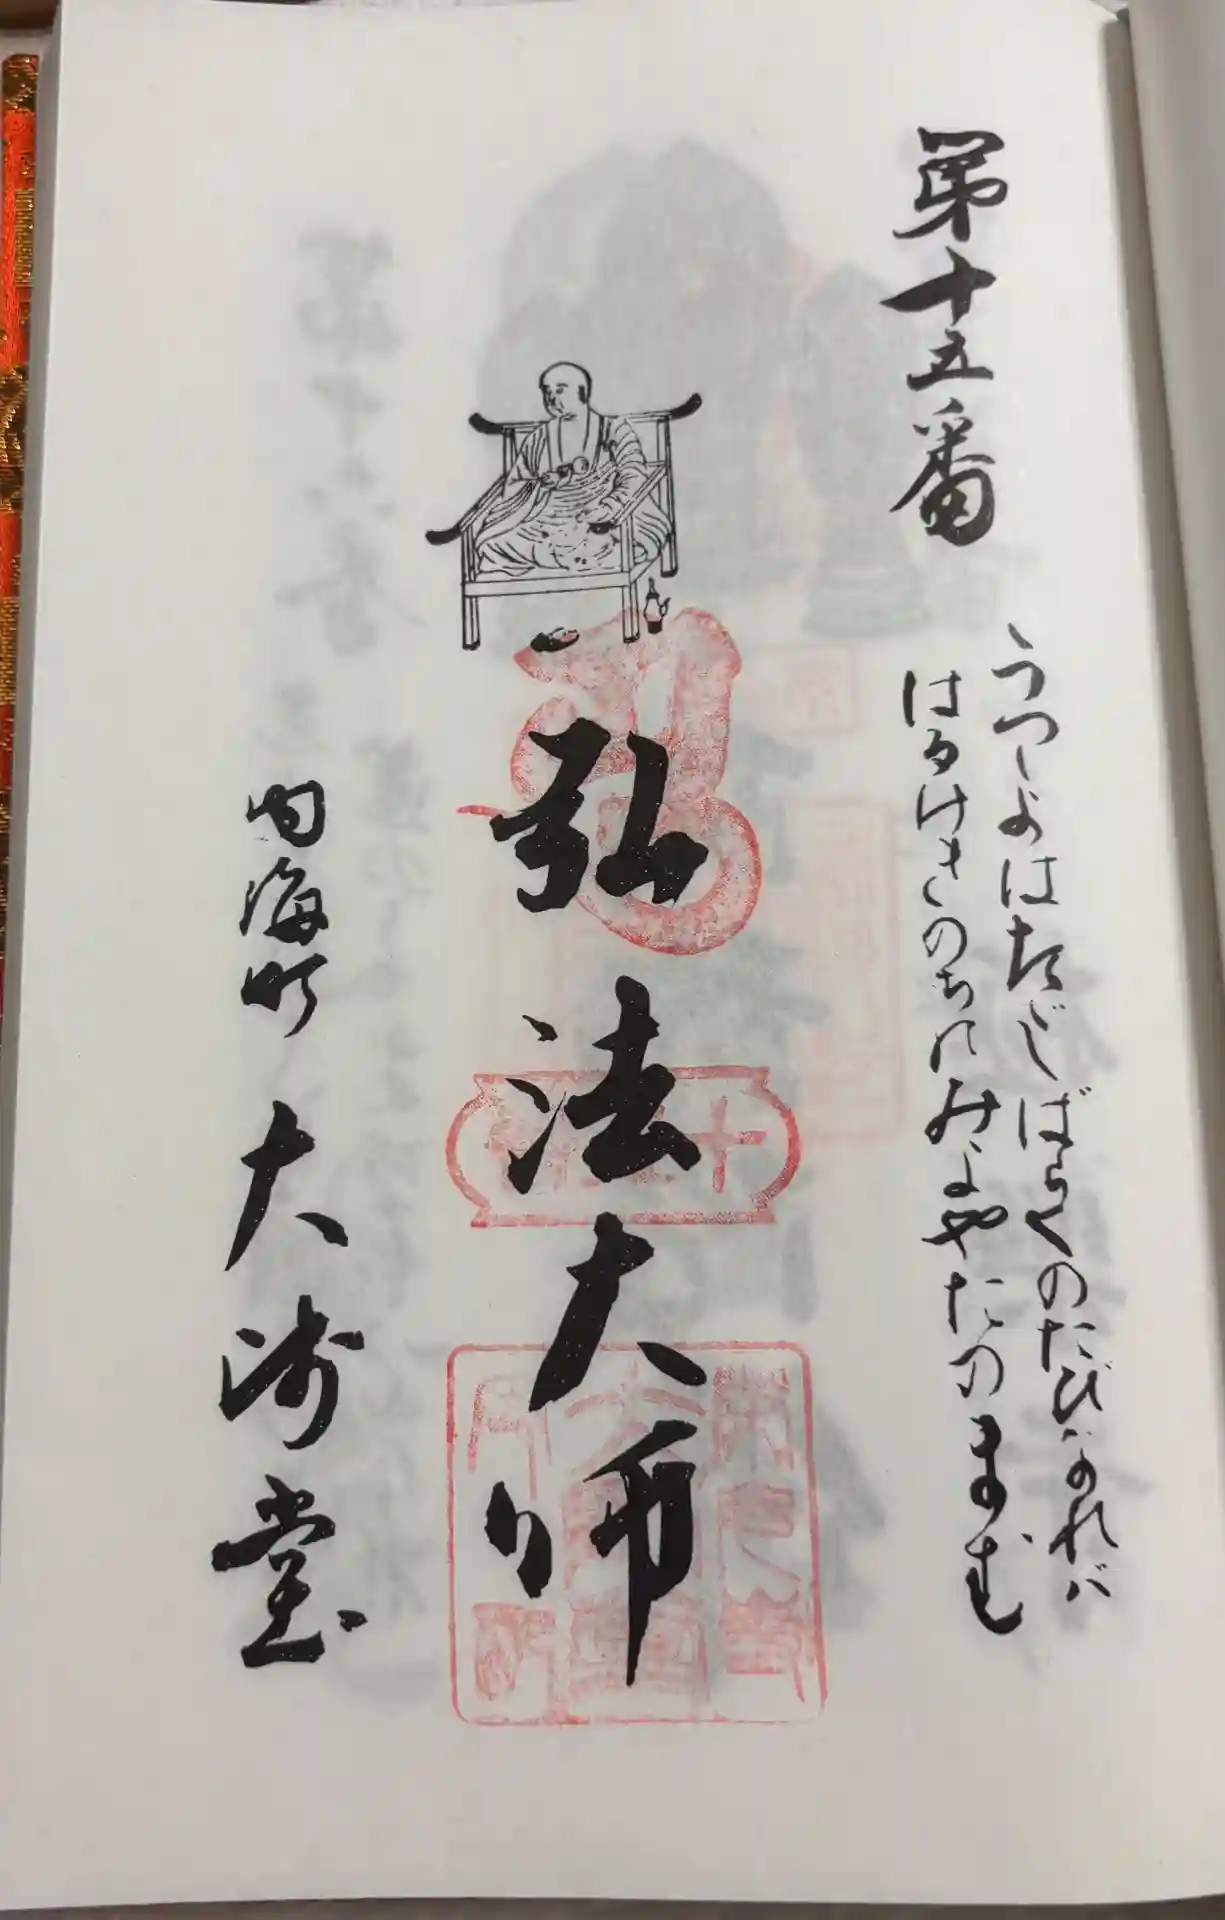 第十五番
うつしよはたゞしばらくのたびなれバ
はるけきのちのみよやたのまむ
弘法大師
内海町 大師堂
十五番